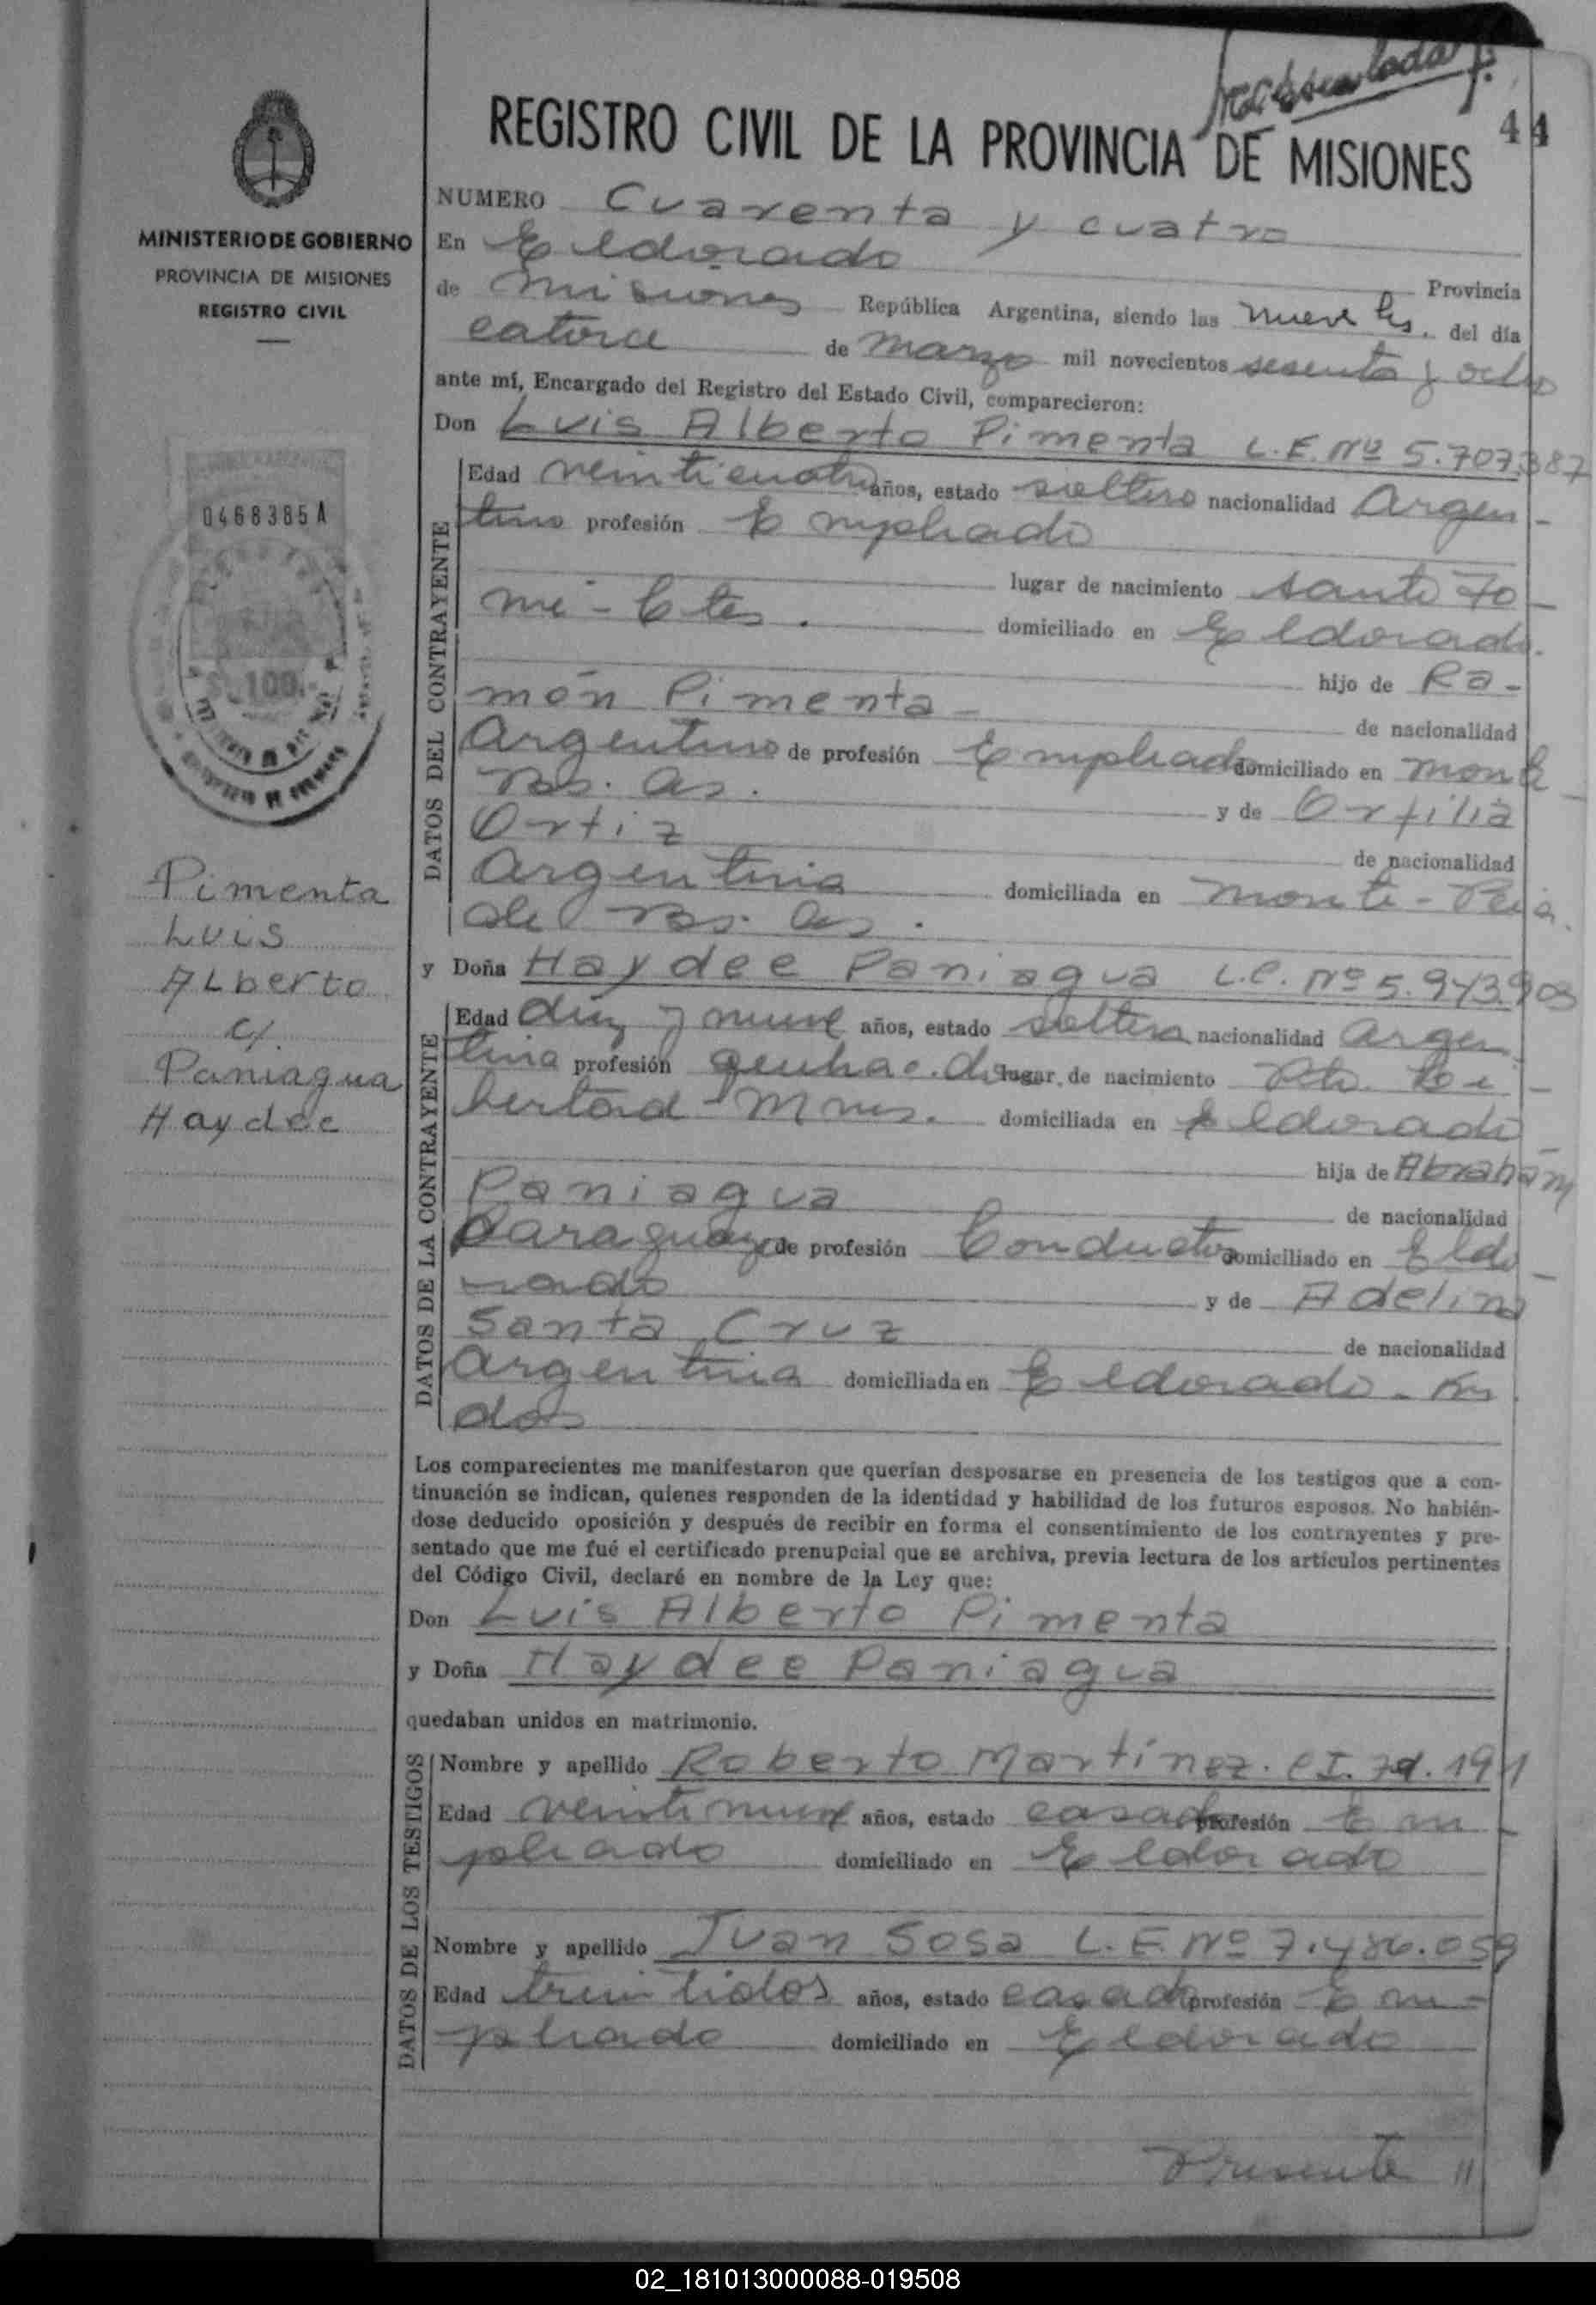 44
REGISTRO CIVIL DE LA PROVINCIA DE MISIONES
MINISTERIO DE GOBIERNO
PROVINCIA DE MISIONES
REGISTRO CIVIL
0468385 A
100.-
Pimenta
Luis
ALberto
c/
Paniagua
Haydee
NUMERO Cuarenta y cuatro
En Eldorado Provincia
de Misiones República Argentina, siendo las nueve hs. del día
catorce de marzo mil novecientos sesenta y ocho
ante mí, Encargado del Registro del Estado Civil, comparecieron:
Don Luis Alberto Pimenta L.E. Nº 5.707.387
DATOS DEL CONTRAYENTE
Edad veinticuatro años, estado soltero nacionalidad Argen-
tino profesión Empleado
lugar de nacimiento Santo To-
mé - Ctes. domiciliado en Eldorado.
hijo de Ra-
món Pimenta - de nacionalidad
Argentino de profesión Empleado domiciliado en Monte
Bs. As. y de Orfilia
Ortiz de nacionalidad
Argentina domiciliada en Monte-
de Bs. As.
y Doña Haydee Paniagua L.C. Nº 5.943.903
DATOS DE LA CONTRAYENTE
Edad diez y nueve años, estado soltera nacionalidad Argen-
tina profesión lugar de nacimiento Pto. Li-
bertad - Mnes. domiciliada en Eldorado
hija de Abraham
Paniagua de nacionalidad
Paraguayo de profesión Conductor domiciliado en Eldo-
rado y de Adelina
Santa Cruz de nacionalidad
Argentina domiciliada en Eldorado - Km.
dos
Los comparecientes me manifestaron que querían desposarse en presencia de los testigos que a con-
tinuación se indican, quienes responden de la identidad y habilidad de los futuros esposos. No habién-
dose deducido oposición y después de recibir en forma el consentimiento de los contrayentes y pre-
sentado que me fué el certificado prenupcial que se archiva, previa lectura de los artículos pertinentes
del Código Civil, declaré en nombre de la Ley que:
Don Luis Alberto Pimenta
y Doña Haydee Paniagua
quedaban unidos en matrimonio.
DATOS DE LOS TESTIGOS
Nombre y apellido Roberto Martínez. CI. 191
Edad veintinueve años, estado casado profesión Em-
pleado domiciliado en Eldorado
Nombre y apellido Juan Sosa L.E. Nº 7.486.059
Edad treintidos años, estado casado profesión Em-
pleado domiciliado en Eldorado
Presente //
02_181013000088-019508